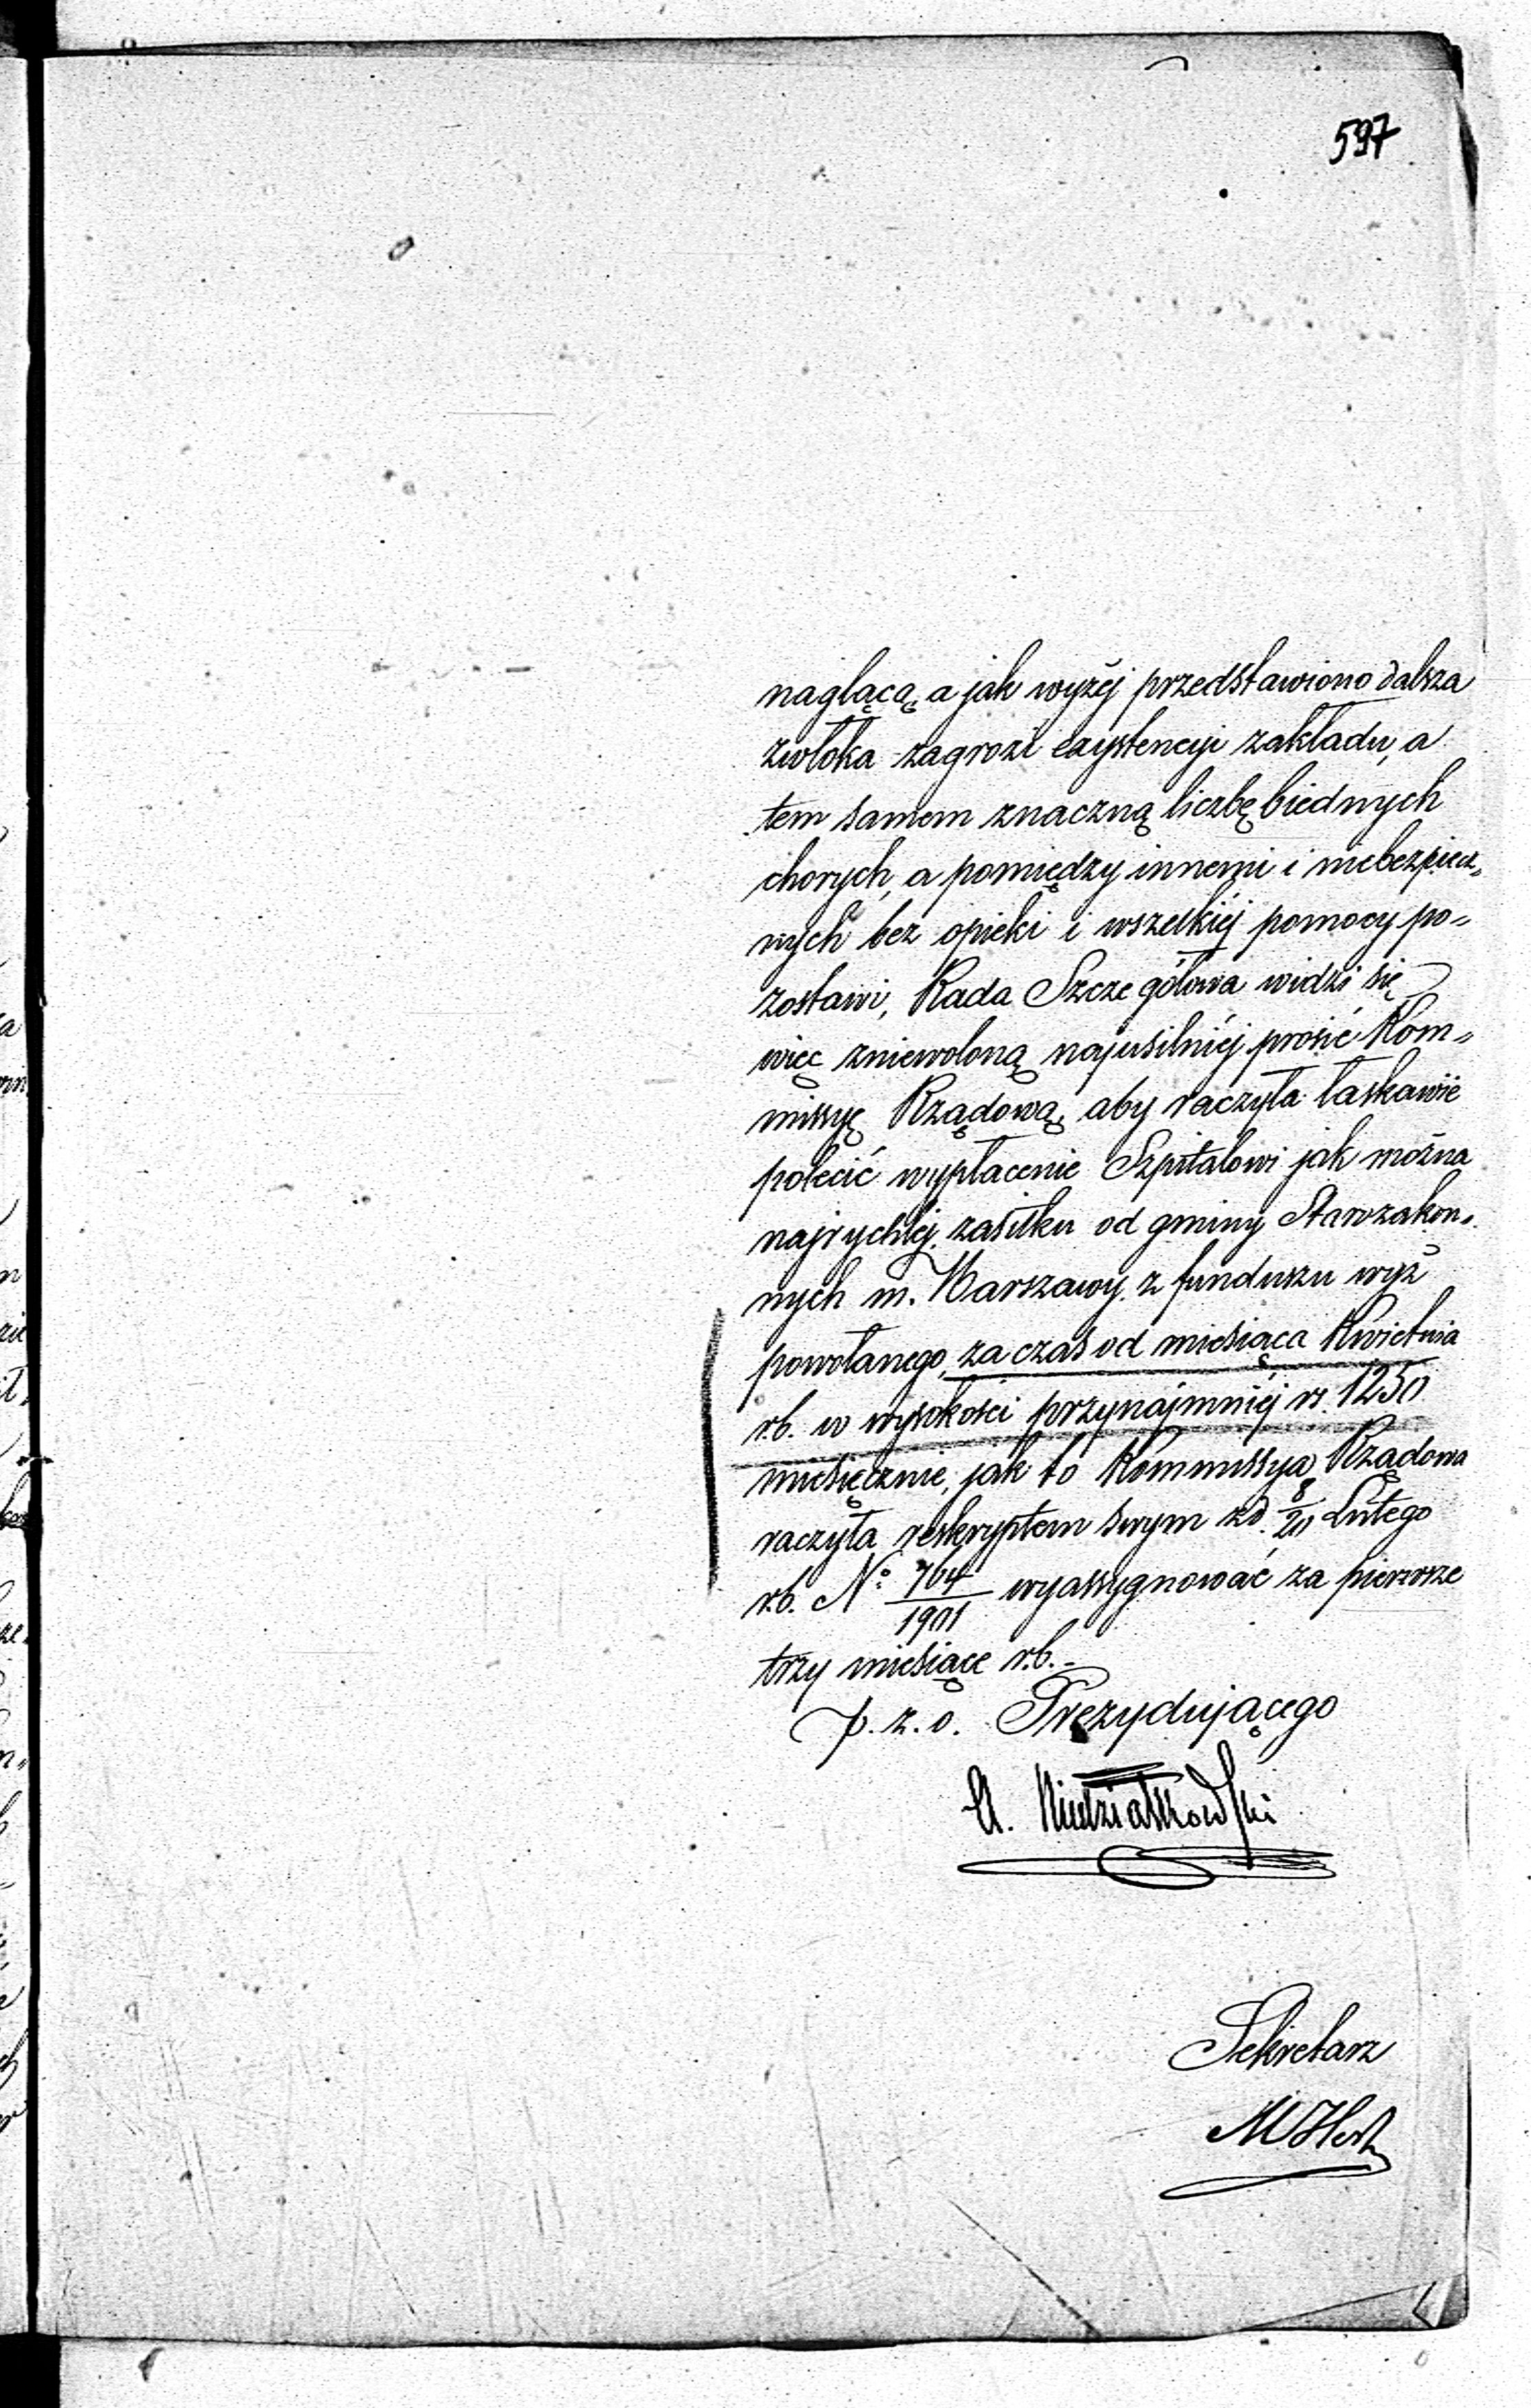 597
naglącą, a jak wyżéj przedstawiono dalsza
zwłoka zagrozi exystencyi zakładu, a
tem samem znaczną liczbę biednych
chorych, a pomiędzy innemi i niebezpiecz„
nych bez opieki i wszelkiéj pomocy po„
zostawi, Rada Szczegółowa widzi się
więc zniewoloną najusilniéj prosić Kom„
missyę Rządową, aby raczyła łaskawie
polecić wypłacenie Szpitalowi jak można
najrychléj zasiłku od gminy Starozakon„
nych m. Warszawy z funduszu wyż
powołanego, za czas od miesiąca Kwietnia
r.b. w wysokości przynajmniéj rs. 1250
miesięcznie, jak to Kommissya Rządowa
raczyła reskryptem swym z d. 8/20 Lutego
r.b. No: 764/1901 wyassygnować za pierwsze
trzy miesiące r.b.-
p. z. o. Prezydującego
A. Niedziałkowski
Sekretarz
M Herz